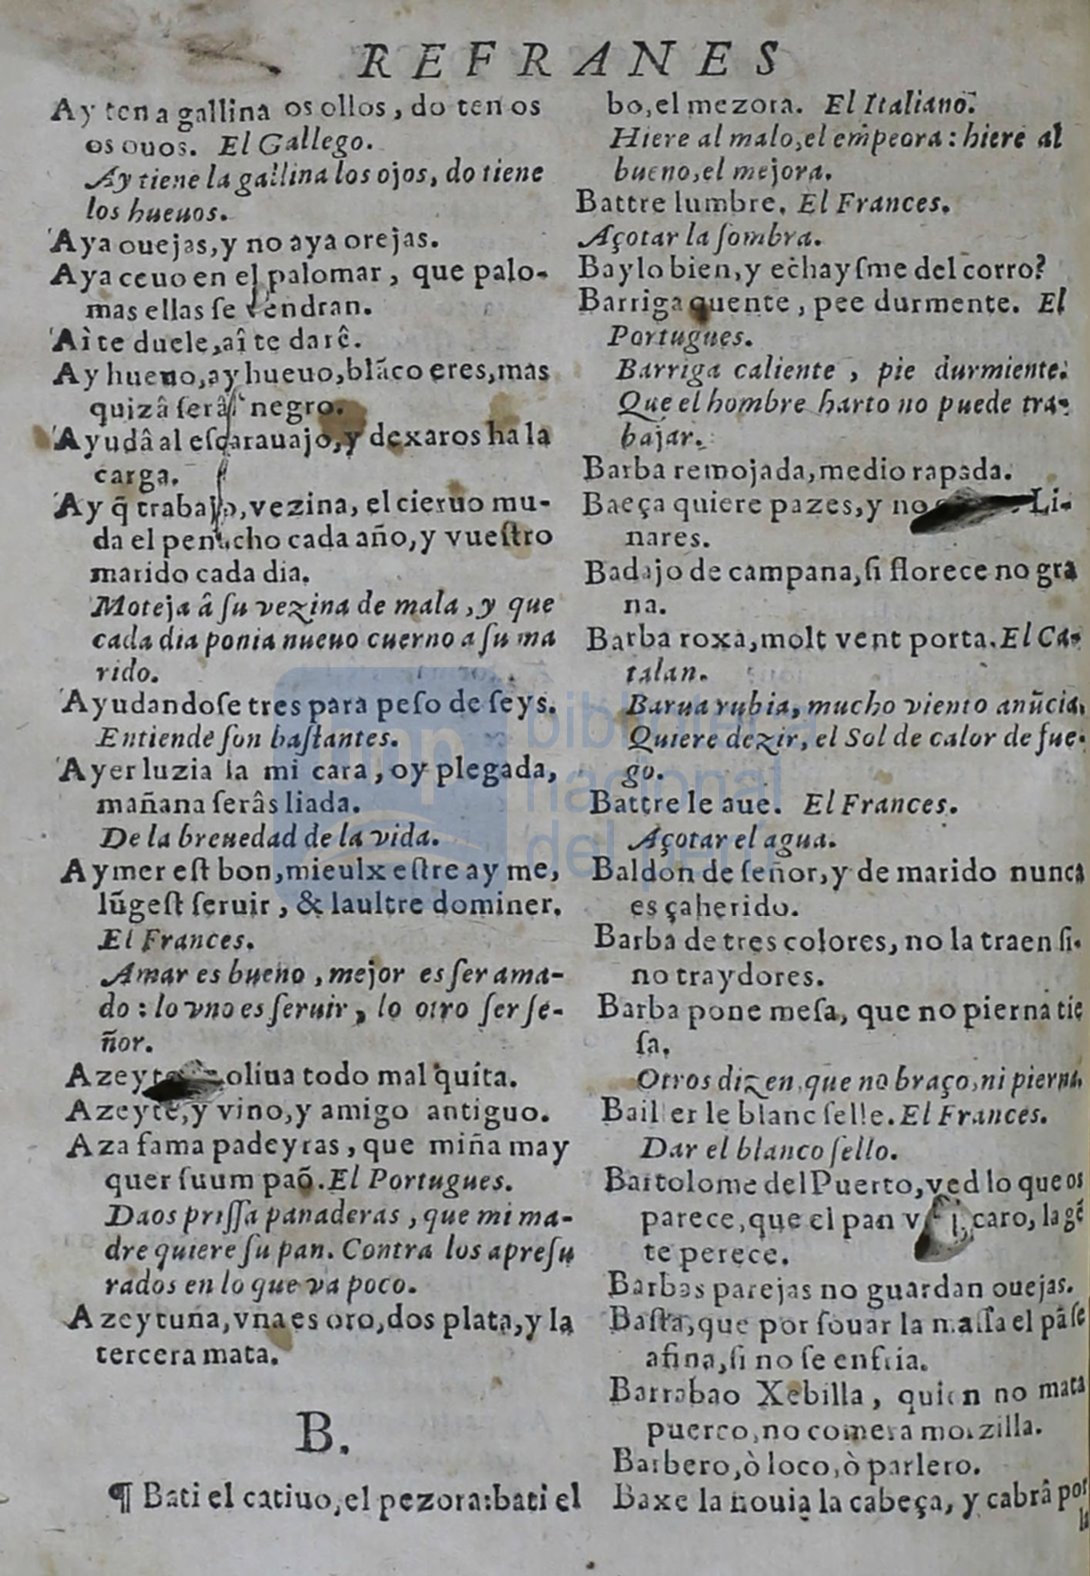 REFRANES
Ay ten a gallina os ollos, do ten os
os ouos. El Gallego.
Ay tiene la gallina los ojos, do tiene
los hueuos.
Aya ouejas, y no aya orejas.
Aya ceuo en el palomar, que palo-
mas ellas ſe vendran.
Aì te duele, aî te darê.
Ay hueuo, ay hueuo, blãco eres, mas
quizâ ſerâs negro.
Ayudâ al eſcarauajo, y dexaros ha la
carga.
Ay q̃ trabajo, vezina, el cieruo mu-
da el penacho cada año, y vueſtro
marido cada dia.
Moteja â ſu vezina de mala, y que
cada dia ponia nueuo cuerno a ſu ma
rido.
Ayudandoſe tres para peſo de ſeys.
Entiende ſon baſtantes.
Ayer luzia la mi cara, oy plegada,
mañana ſerâs liada.
De la breuedad de la vida.
Aymer eſt bon, mieulx eſtre ayme,
lũgeſt ſeruir, & laultre dominer.
El Frances.
Amar es bueno, mejor es ſer ama-
do: lo vno es ſeruir, lo otro ſer ſe-
ñor.
Azeyte oliua todo mal quita.
Azeyte, y vino, y amigo antiguo.
Aza fama padeyras, que miña may
quer ſuum paõ. El Portugues.
Daos priſſa panaderas, que mi ma-
dre quiere ſu pan. Contra los apreſu
rados en lo que va poco.
Azeytuna, vna es oro, dos plata, y la
tercera mata.
B.
¶ Bati el catiuo, el pezora: bati el
bo, el mezora. El Italiano.
Hiere al malo, el empeora: hiere al
bueno, el mejora.
Battre lumbre. El Frances.
Açotar la ſombra.
Baylo bien, y echayſme del corro?
Barriga quente, pee durmente. El
Portugues.
Barriga caliente, pie durmiente.
Que el hombre harto no puede tra-
bajar.
Barba remojada, medio rapada.
Baeça quiere pazes, y no Li-
nares.
Badajo de campana, ſi florece no gra
na.
Barba roxa, molt vent porta. El Ca-
talan.
Barua rubia, mucho viento anũcia.
Quiere dezir, el Sol de calor de fue-
go.
Battre le aue. El Frances.
Açotar el agua.
Baldon de ſeñor, y de marido nunca
es çaherido.
Barba de tres colores, no la traen ſi-
no traydores.
Barba pone meſa, que no pierna tie
ſa.
Otros dizen, que no braço, ni pierna.
Bailler le blanc ſelle. El Frances.
Dar el blanco ſello.
Bartolome del Puerto, ved lo que os
parece, que el pan caro, la gẽ
te perece.
Barbas parejas no guardan ouejas.
Baſta, que por ſouar la maſſa el pã ſe
afina, ſi no ſe enfria.
Barrabao Xebilla, quien no mata
puerco, no comera morzilla.
Barbero, ò loco, ò parlero.
Baxe la nouia la cabeça, y cabrâ por
la
biblioteca
nacional
del perú